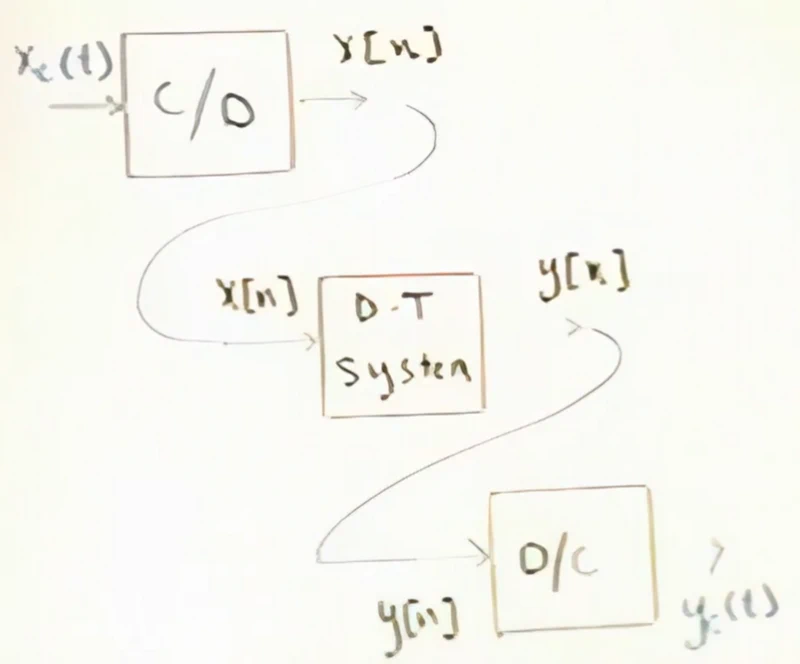 x_c(t)
C/D
x[n]
x[n]
D-T
System
y[n]
D/C
y[n]
y_c(t)